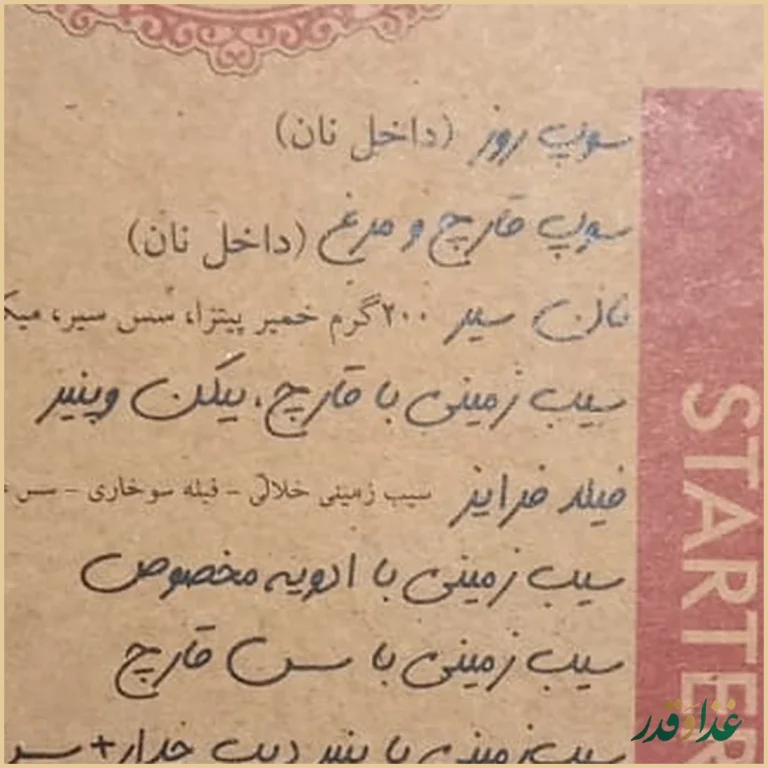 سوپ روز (داخل نان)
سوپ قارچ و مرغ (داخل نان)
نان سیر ۲۰۰گرم خمیر پیتزا، سس سیر، میک
سیب زمینی با قارچ، بیکن و پنیر
فیله فرایز سیب زمینی خلالی - فیله سوخاری - سس
سیب زمینی با ادویه مخصوص
سیب زمینی با سس قارچ
سیب زمینی با پنیر دیپ چدار+
STARTER
غذا و قدر